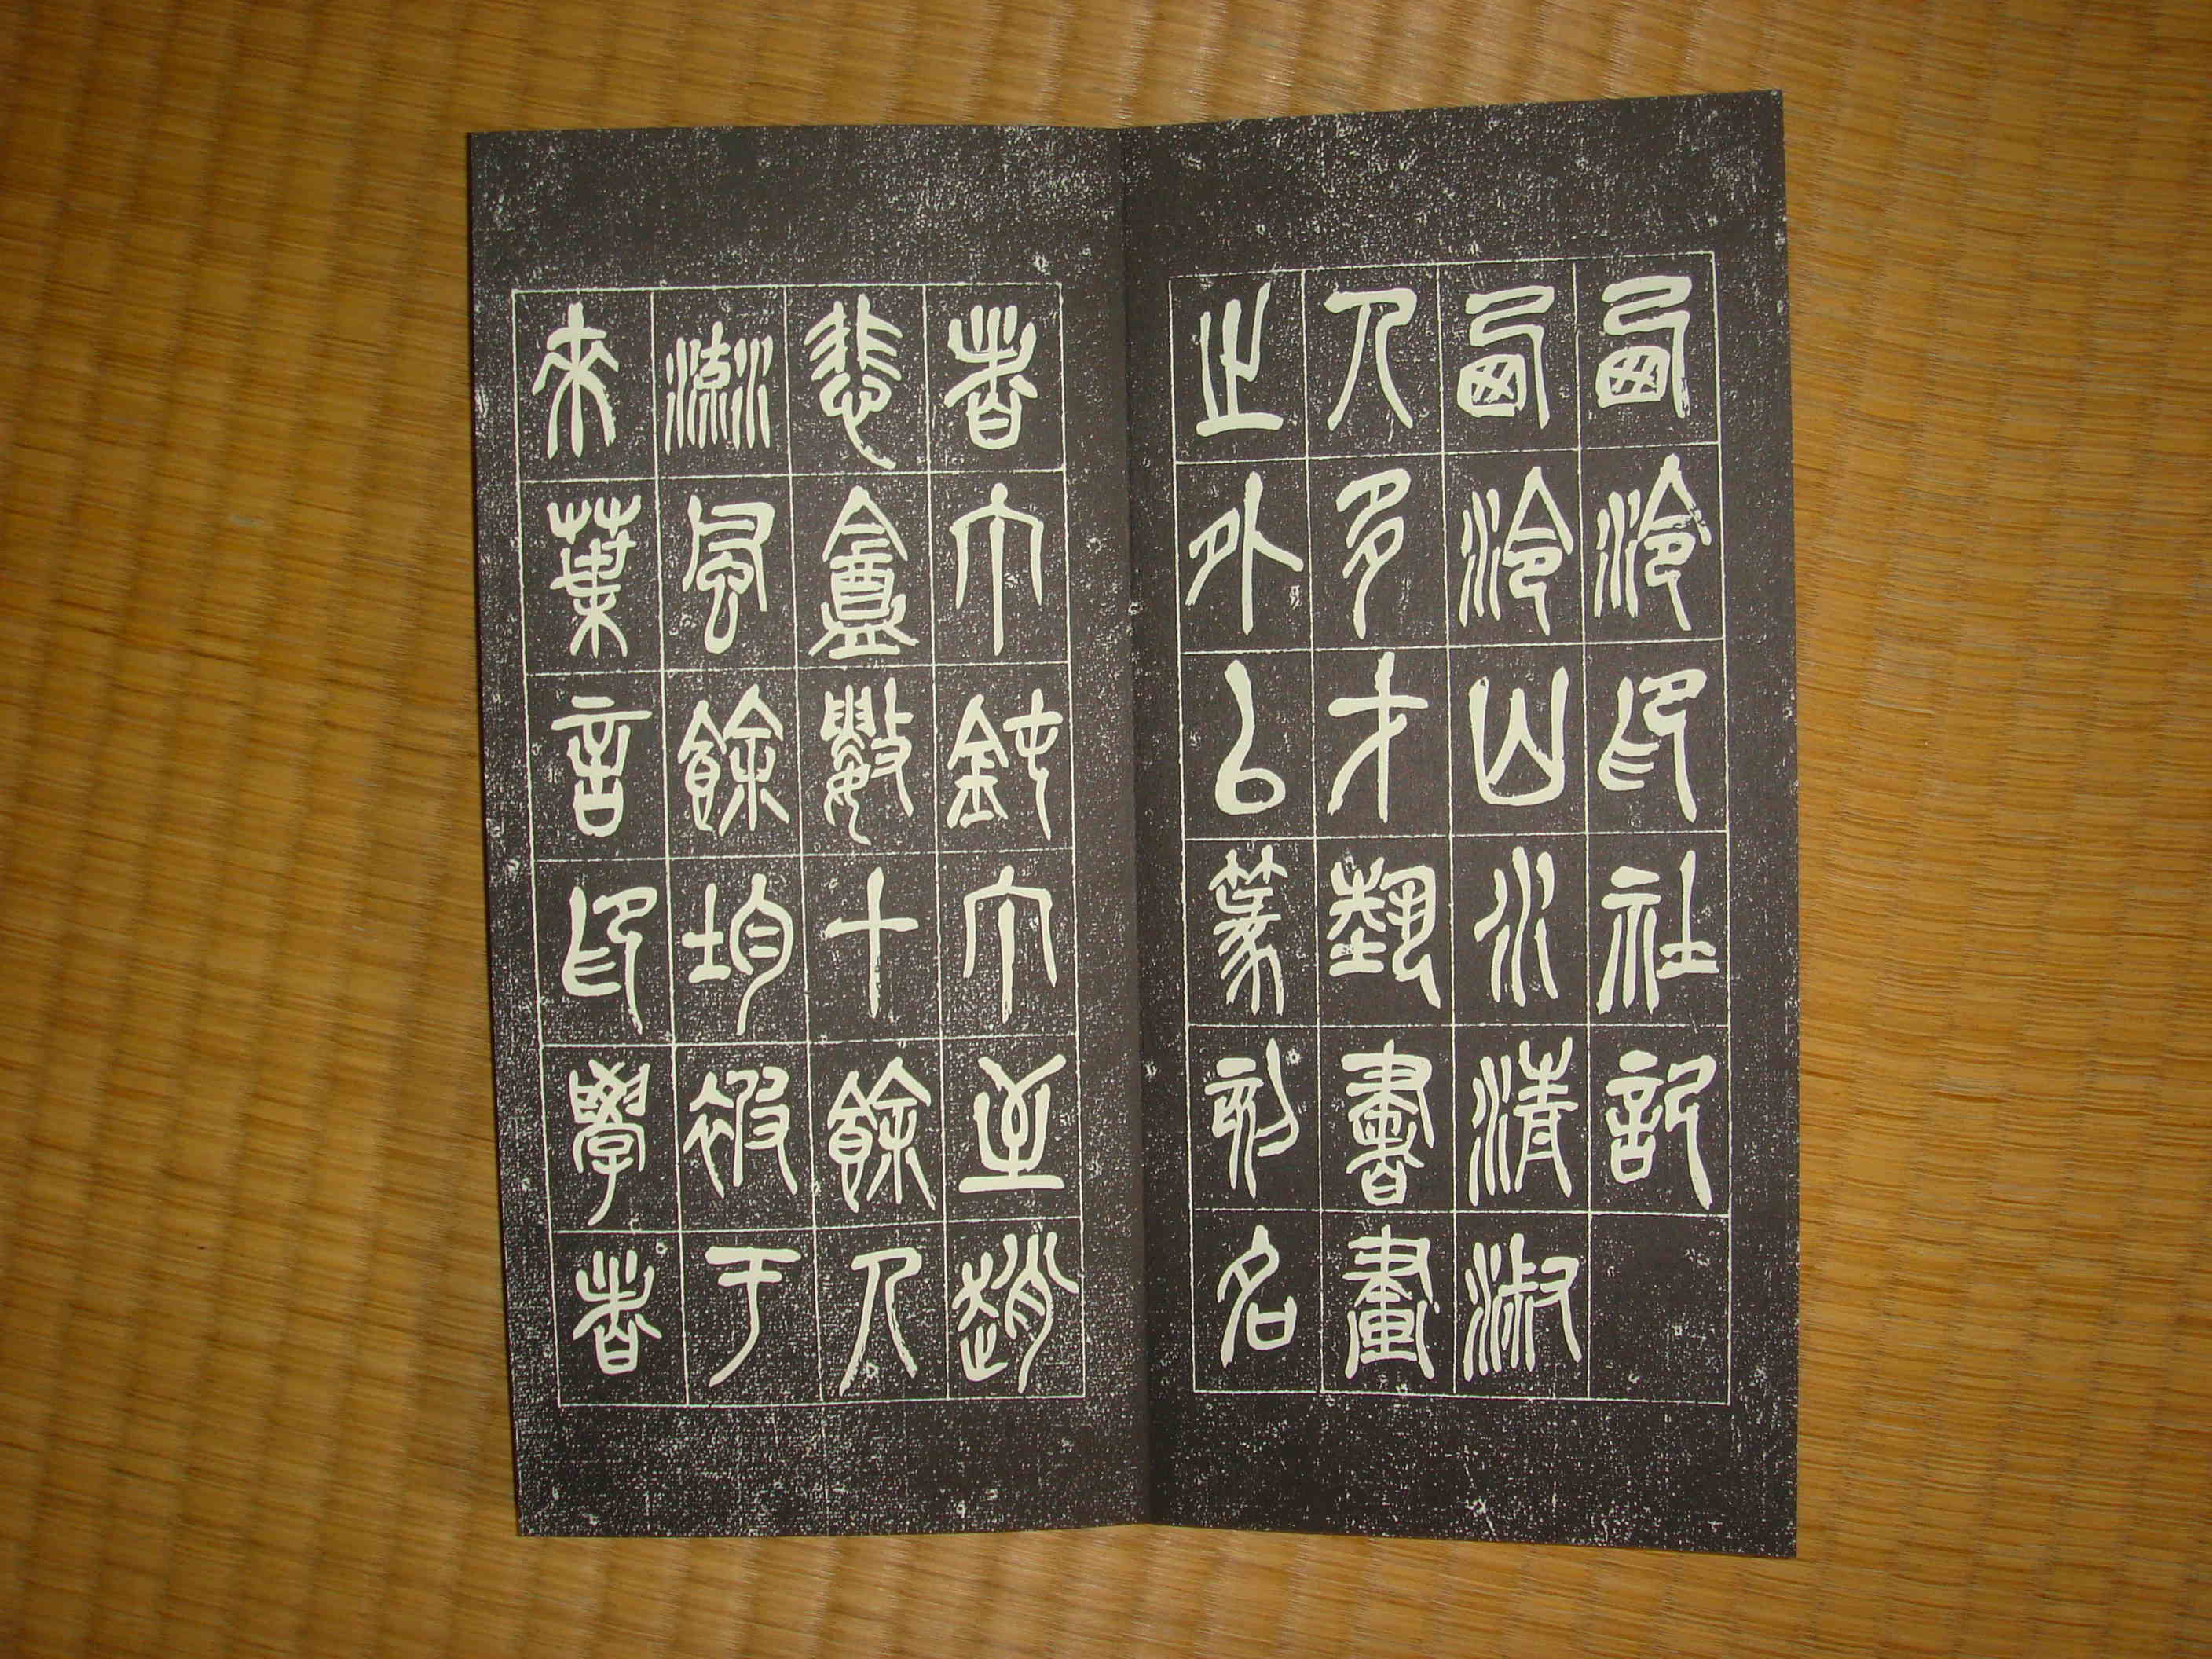 西泠印社記
西泠山水清淑
人多才藝書畫
之外以篆刻名
者丁鈍丁至趙
悲盦數十餘人
流風餘均被于
來葉言印學者